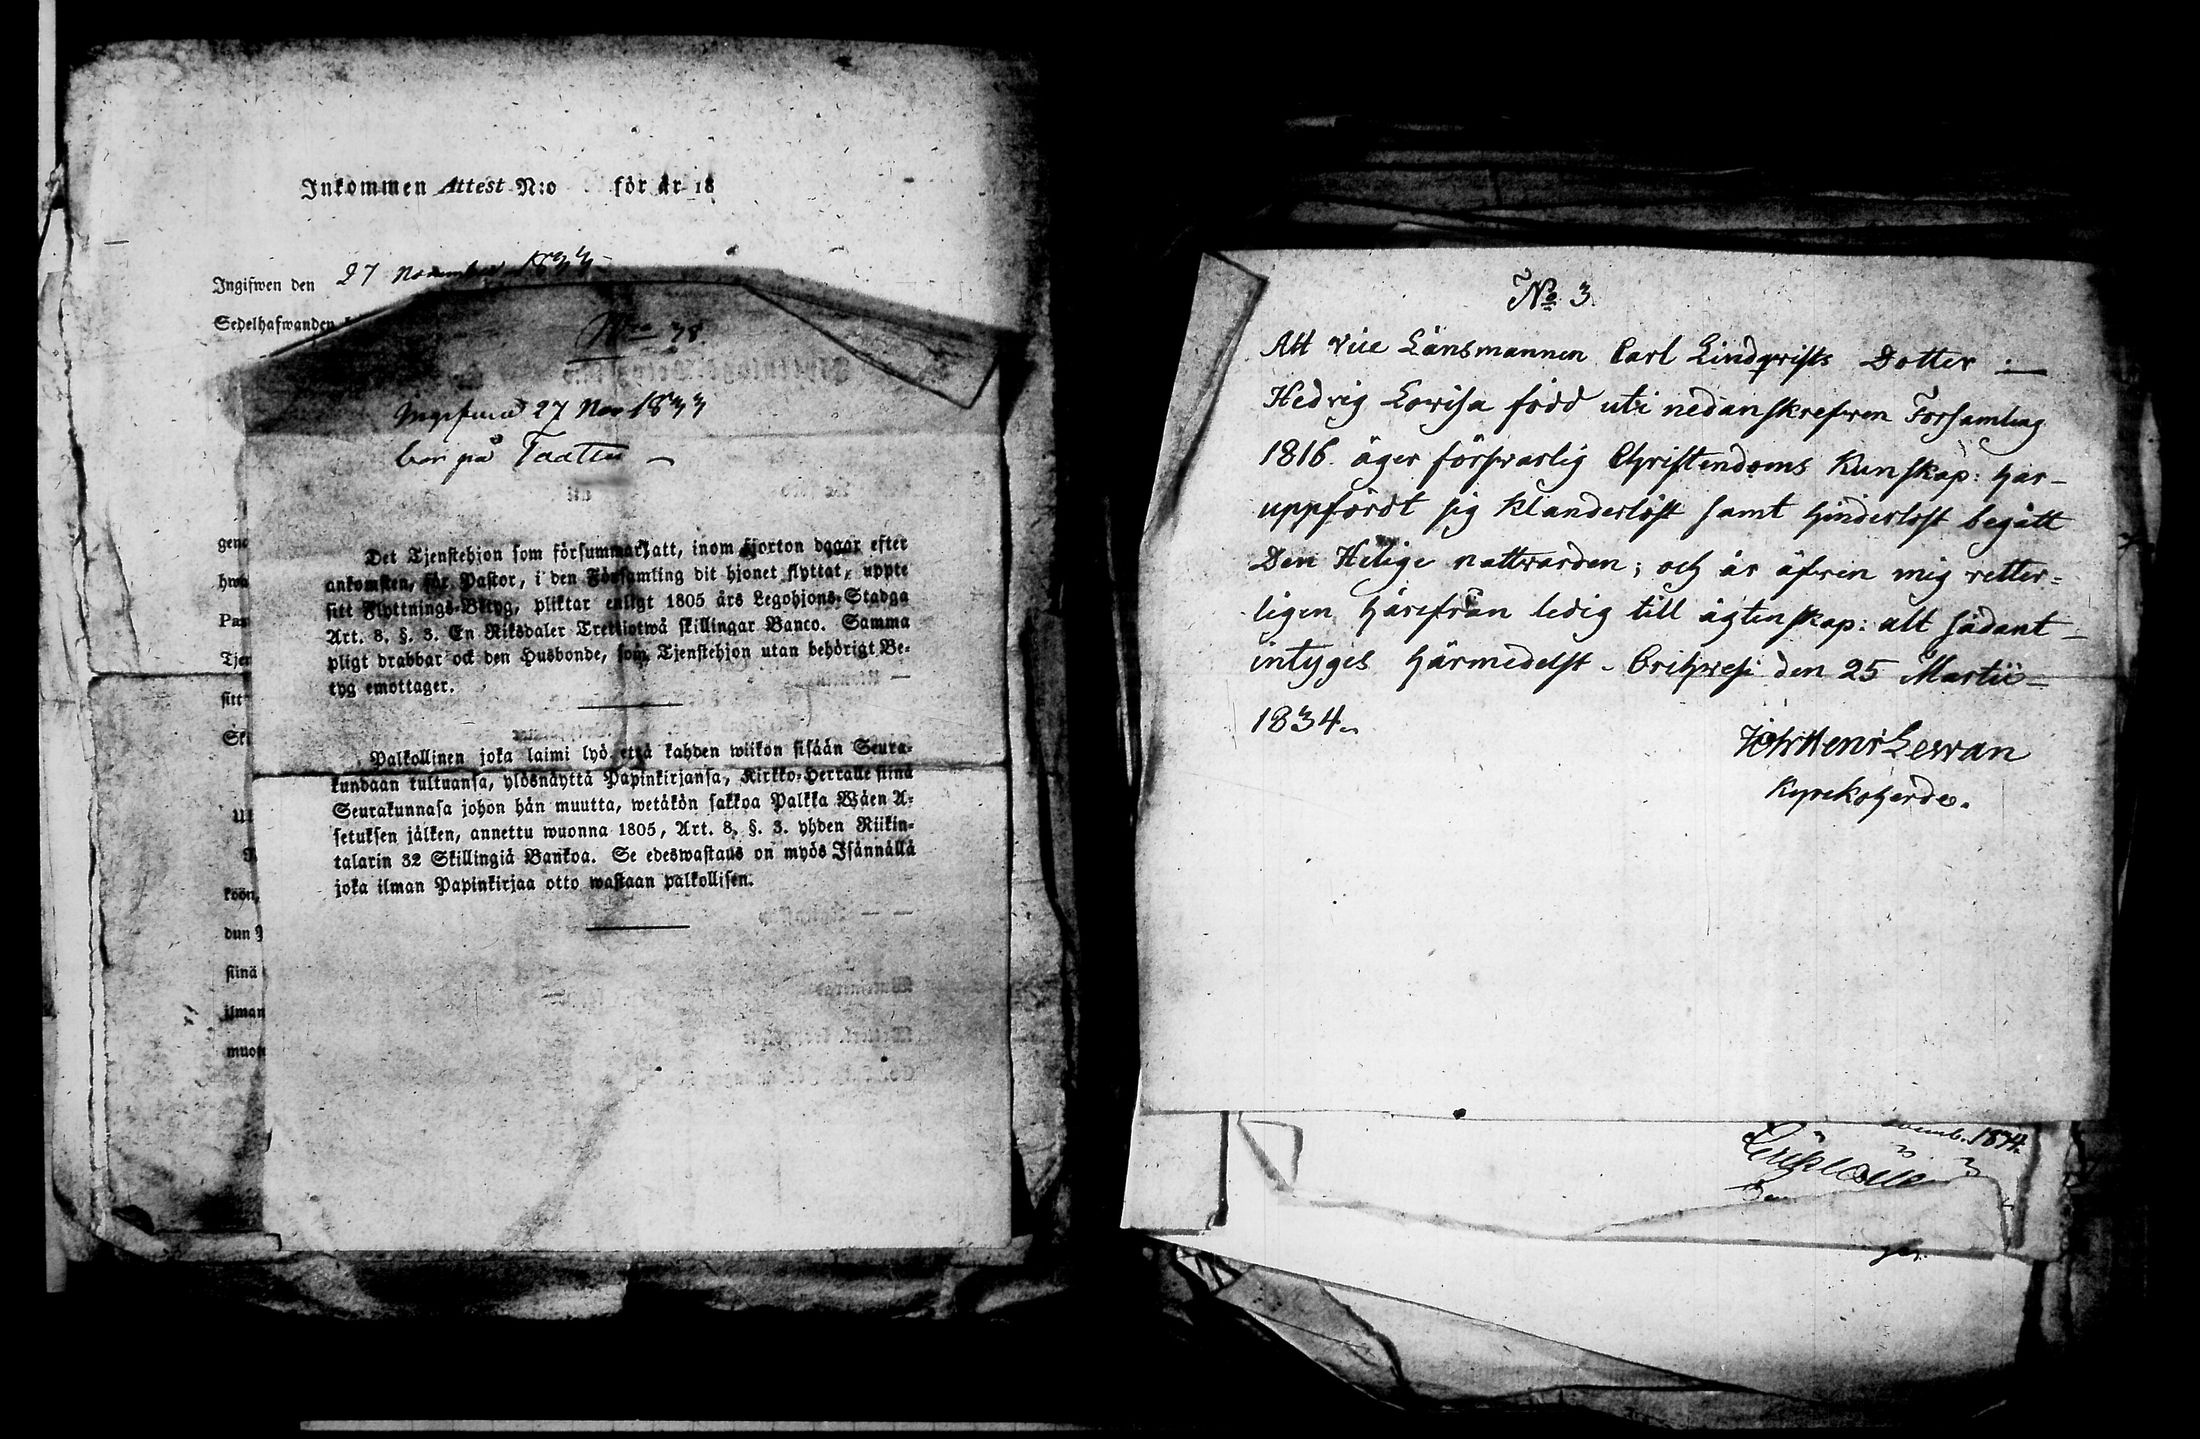 Inkommen Attest N:o för år 18
Ingifwen den 27 November 1833
Sedelhafwanden
Nro 38.
Ingifwed 27 Nov 1833
bor på
Det Tjenstehjon som försummar att, inom fjorton dagar efter
ankomsten, för Pastor, i den Församling dit hjonet flyttat, uppte
sitt Flyttnings-Betyg, pliktar enligt 1805 års Legohjons-Stadga
Art. 8. §. 3. En Riksdaler Trettiotwå skillingar Banco. Samma
pligt drabbar ock den Husbonde, som Tjenstehjon utan behörigt Be-
tyg emottager.
Palkollinen joka laimi lyö että kahden wiikon sisään Seura-
kundaan tultuansa, ylösnäyttä Papinkirjansa, Kirkko-Herralle siinä
Seurakunnasa johon hän muutta, wetäkön sakkoa Palkka Wäen A-
setuksen jälken, annettu wuonna 1805, Art. 8. §. 3. yhden Riikin-
talarin 32 Skillingiä Bankoa. Se edeswastaus on myös Isännällä
joka ilman Papinkirjaa otto wastaan palkollisen.
No 3
Att vice Länsmannen Carl Lindqvists Dotter
Hedvig Lovisa född uti nedanskrefven Församling
1816. äger försvarlig Christendoms Kunskap: har
uppfördt sig Klanderlöst samt hinderlöst begått
Den Helige nattvarden; och är äfven mig vetter-
ligen härifrån ledig till ägtenskap: alt sådant
intyges härmedelst. Orihvesi den 25 Martii
1834.
Joh Henr Lewan
Kyrckoherde.
1834.